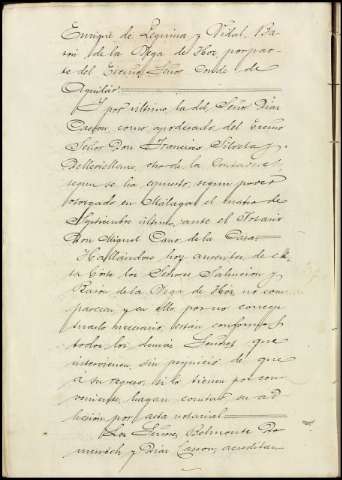 Enrique de Lequina y Vidal, Ba
rón de la Vega de Hoz por par
te del Excmo Señor Conde de
Aguilar.
Y por último la del Señor Díaz
Cassou, como apoderado del Excmo
Señor Don Francisco Silvela y
de la
segun se ha expuesto, segun poder
otorgado en Málaga el
de
Septiembre último, ante el Notario
Don Miguel Cano de la Casa.
Hallándose hoy ausentes de es
ta Corte los Señores Salmeron y
Barón de la Vega de Hoz no com
parecen, y en ello por no concep
tuarlo necesario, estan conformes
todos los demás Señores que
intervienen, sin perjuicio de que
á su regreso, si lo tienen por con
veniente, hagan constar su ad
hesión por acta notarial.
Los Señores Belmonte,
y Díaz Cassou, acreditan